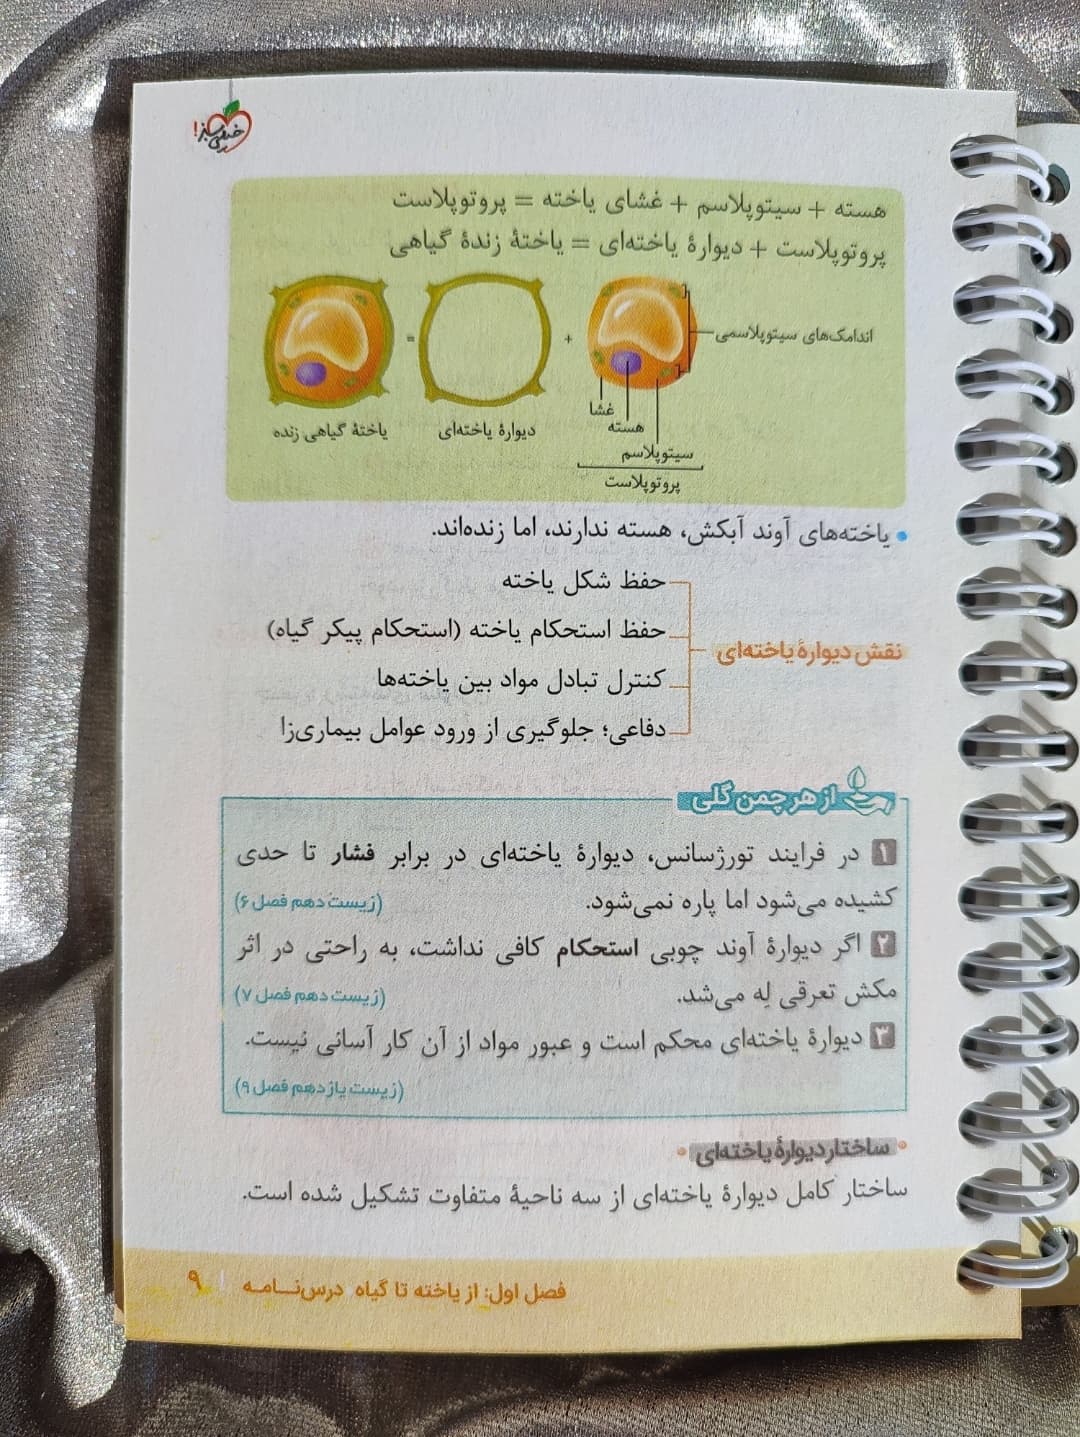 خیلی سبز!
هسته + سیتوپلاسم + غشای یاخته = پروتوپلاست
پروتوپلاست + دیوارهٔ یاخته‌ای = یاختهٔ زندهٔ گیاهی
اندامک‌های سیتوپلاسمی
+
=
غشا
هسته
سیتوپلاسم
پروتوپلاست
دیوارهٔ یاخته‌ای
یاختهٔ گیاهی زنده
• یاخته‌های آوند آبکش، هسته ندارند، اما زنده‌اند.
نقش دیوارهٔ یاخته‌ای
حفظ شکل یاخته
حفظ استحکام یاخته (استحکام پیکر گیاه)
کنترل تبادل مواد بین یاخته‌ها
دفاعی؛ جلوگیری از ورود عوامل بیماری‌زا
از هر چمن گلی
۱ در فرایند تورژسانس، دیوارهٔ یاخته‌ای در برابر فشار تا حدی
کشیده می‌شود اما پاره نمی‌شود. (زیست دهم فصل ۶)
۲ اگر دیوارهٔ آوند چوبی استحکام کافی نداشت، به راحتی در اثر
مکش تعرقی لِه می‌شد. (زیست دهم فصل ۷)
۳ دیوارهٔ یاخته‌ای محکم است و عبور مواد از آن کار آسانی نیست.
(زیست یازدهم فصل ۹)
• ساختار دیوارهٔ یاخته‌ای •
ساختار کامل دیوارهٔ یاخته‌ای از سه ناحیهٔ متفاوت تشکیل شده است.
فصل اول: از یاخته تا گیاه درس‌نـــامـه | ۹